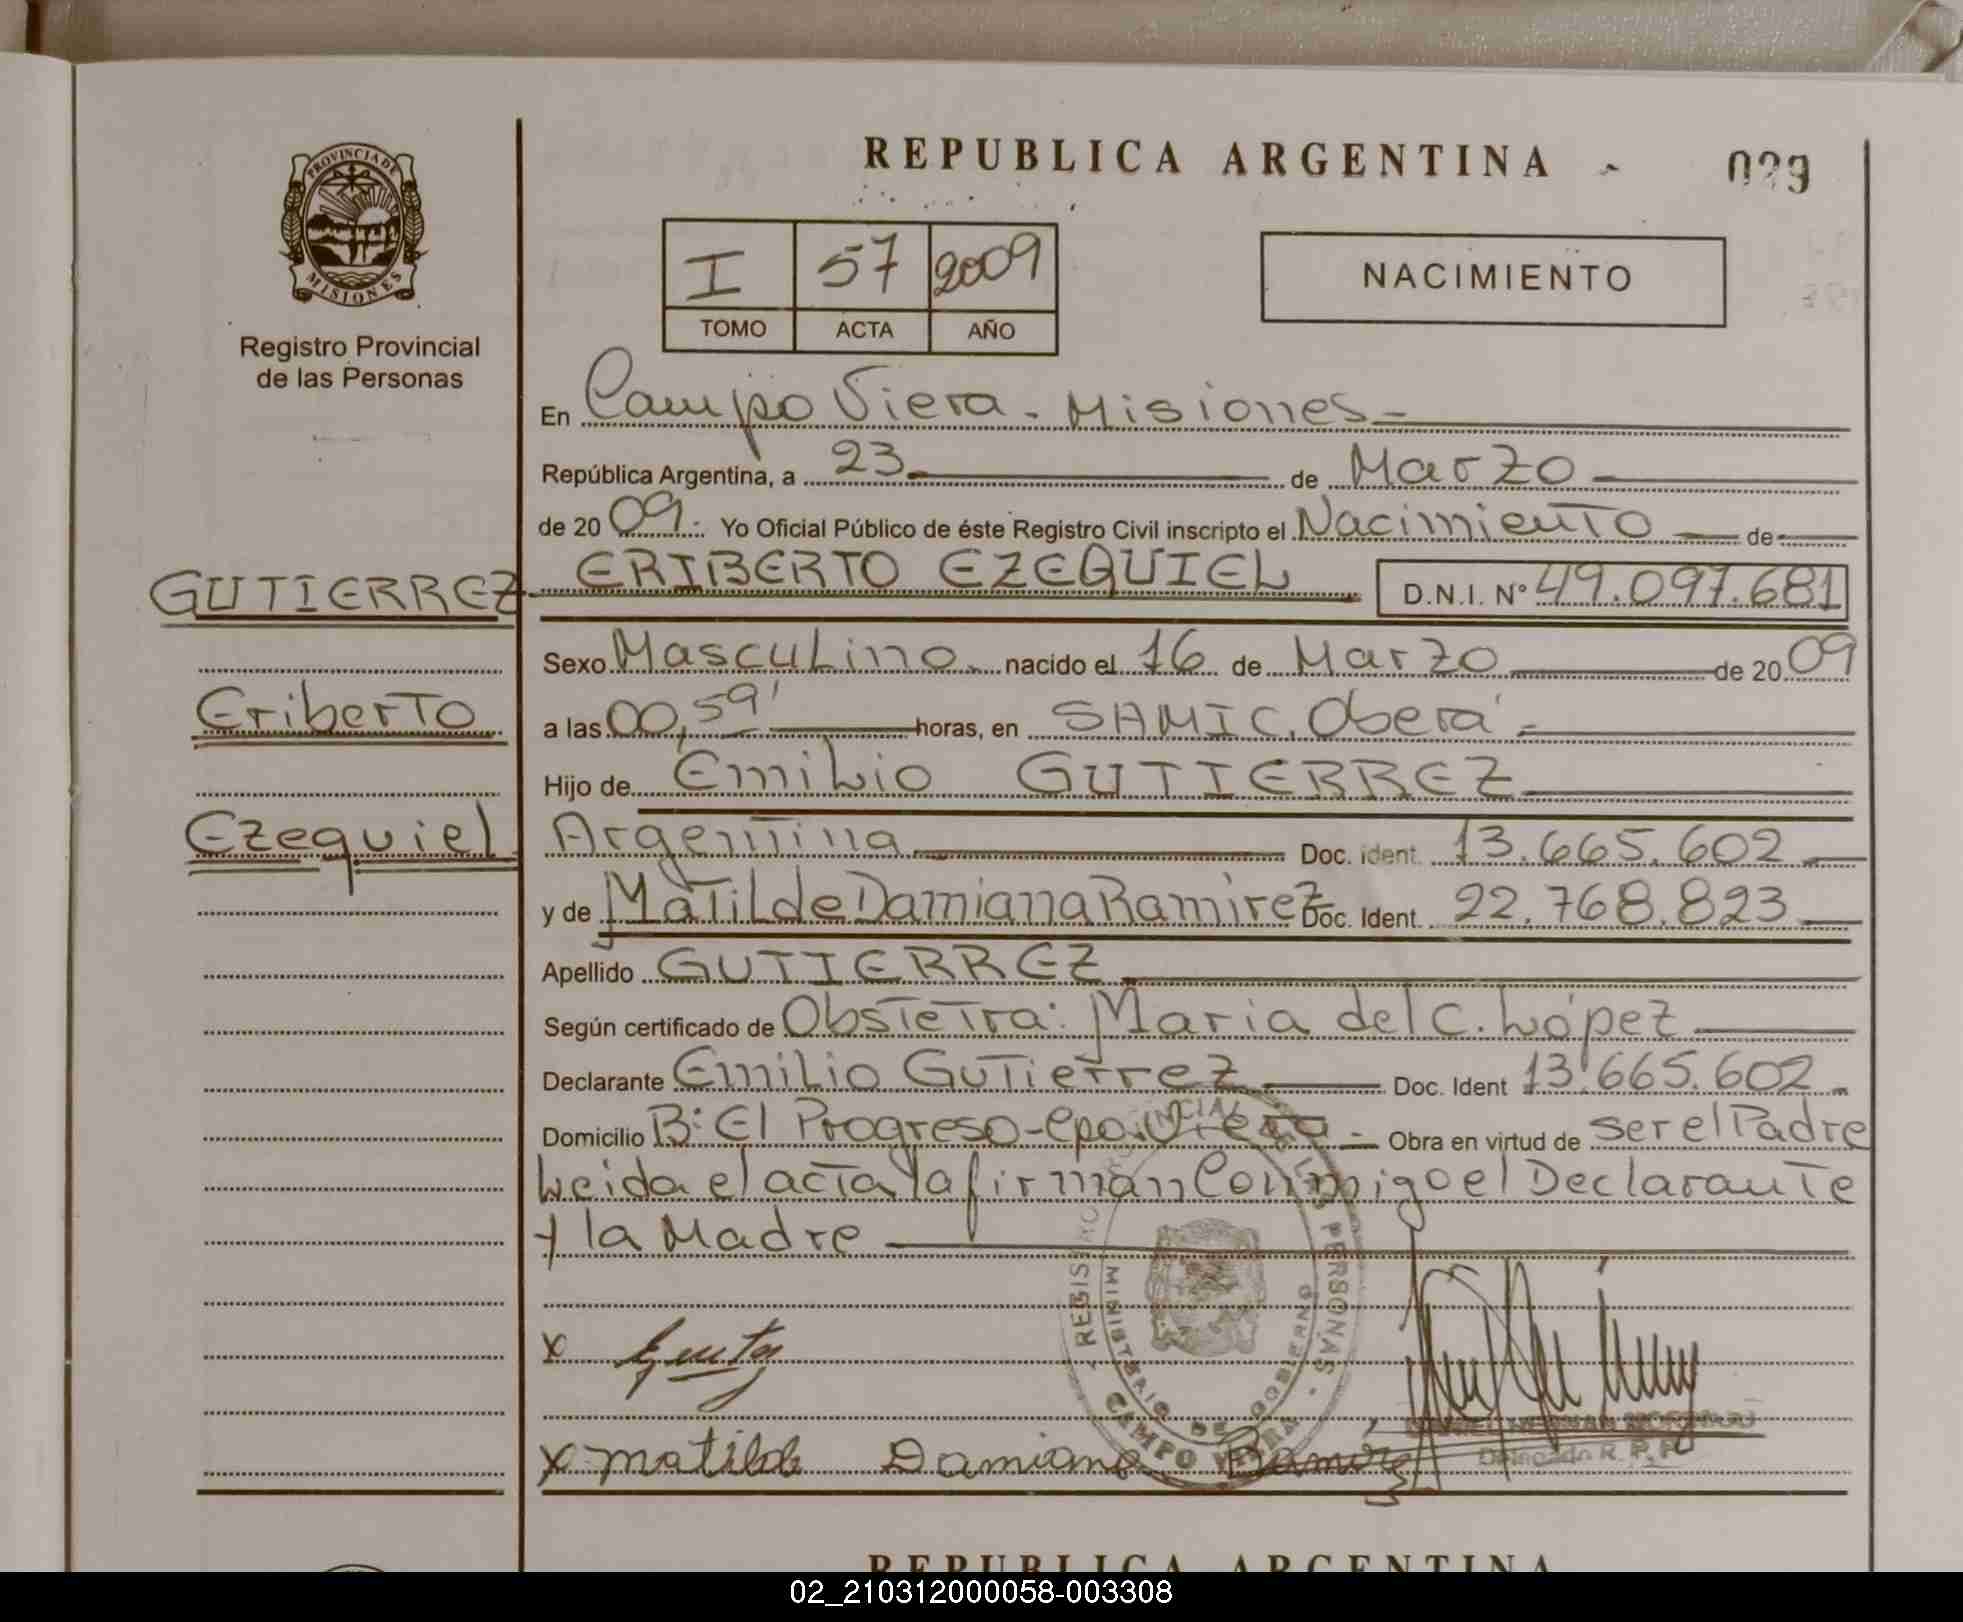 REPUBLICA ARGENTINA
029
PROVINCIA DE
MISIONES
Registro Provincial
de las Personas
I 57 2009
TOMO ACTA AÑO
NACIMIENTO
En Campo Viera - Misiones -
República Argentina, a 23 de Marzo
de 2009. Yo Oficial Público de éste Registro Civil inscripto el Nacimiento de
GUTIERREZ ERIBERTO EZEQUIEL D.N.I. Nº 49.097.681
Sexo Masculino nacido el 16 de Marzo de 2009
Eriberto
a las 00,59' horas, en SAMIC. Oberá -
Hijo de Emilio GUTIERREZ
Ezequiel
Argentina Doc. ident. 13.665.602
y de Matilde Damiana Ramirez Doc. Ident. 22.768.823
Apellido GUTIERREZ
Según certificado de Obstetra: Maria del C. López
Declarante Emilio Gutierrez Doc. Ident 13.665.602
Domicilio B: El Progreso - Cpo. Viera - Obra en virtud de ser el Padre
Leida el acta la firman Conmigo el Declarante
y la Madre
REGISTRO PROVINCIAL DE LAS PERSONAS
MINISTERIO DE GOBIERNO
CAMPO VIERA
x
Delegado R.P.P.
x matilde Damiana Ramirez
REPUBLICA ARGENTINA
02_210312000058-003308